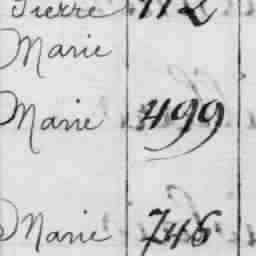 Pierre 112
Marie
Marie 499
Marie 746